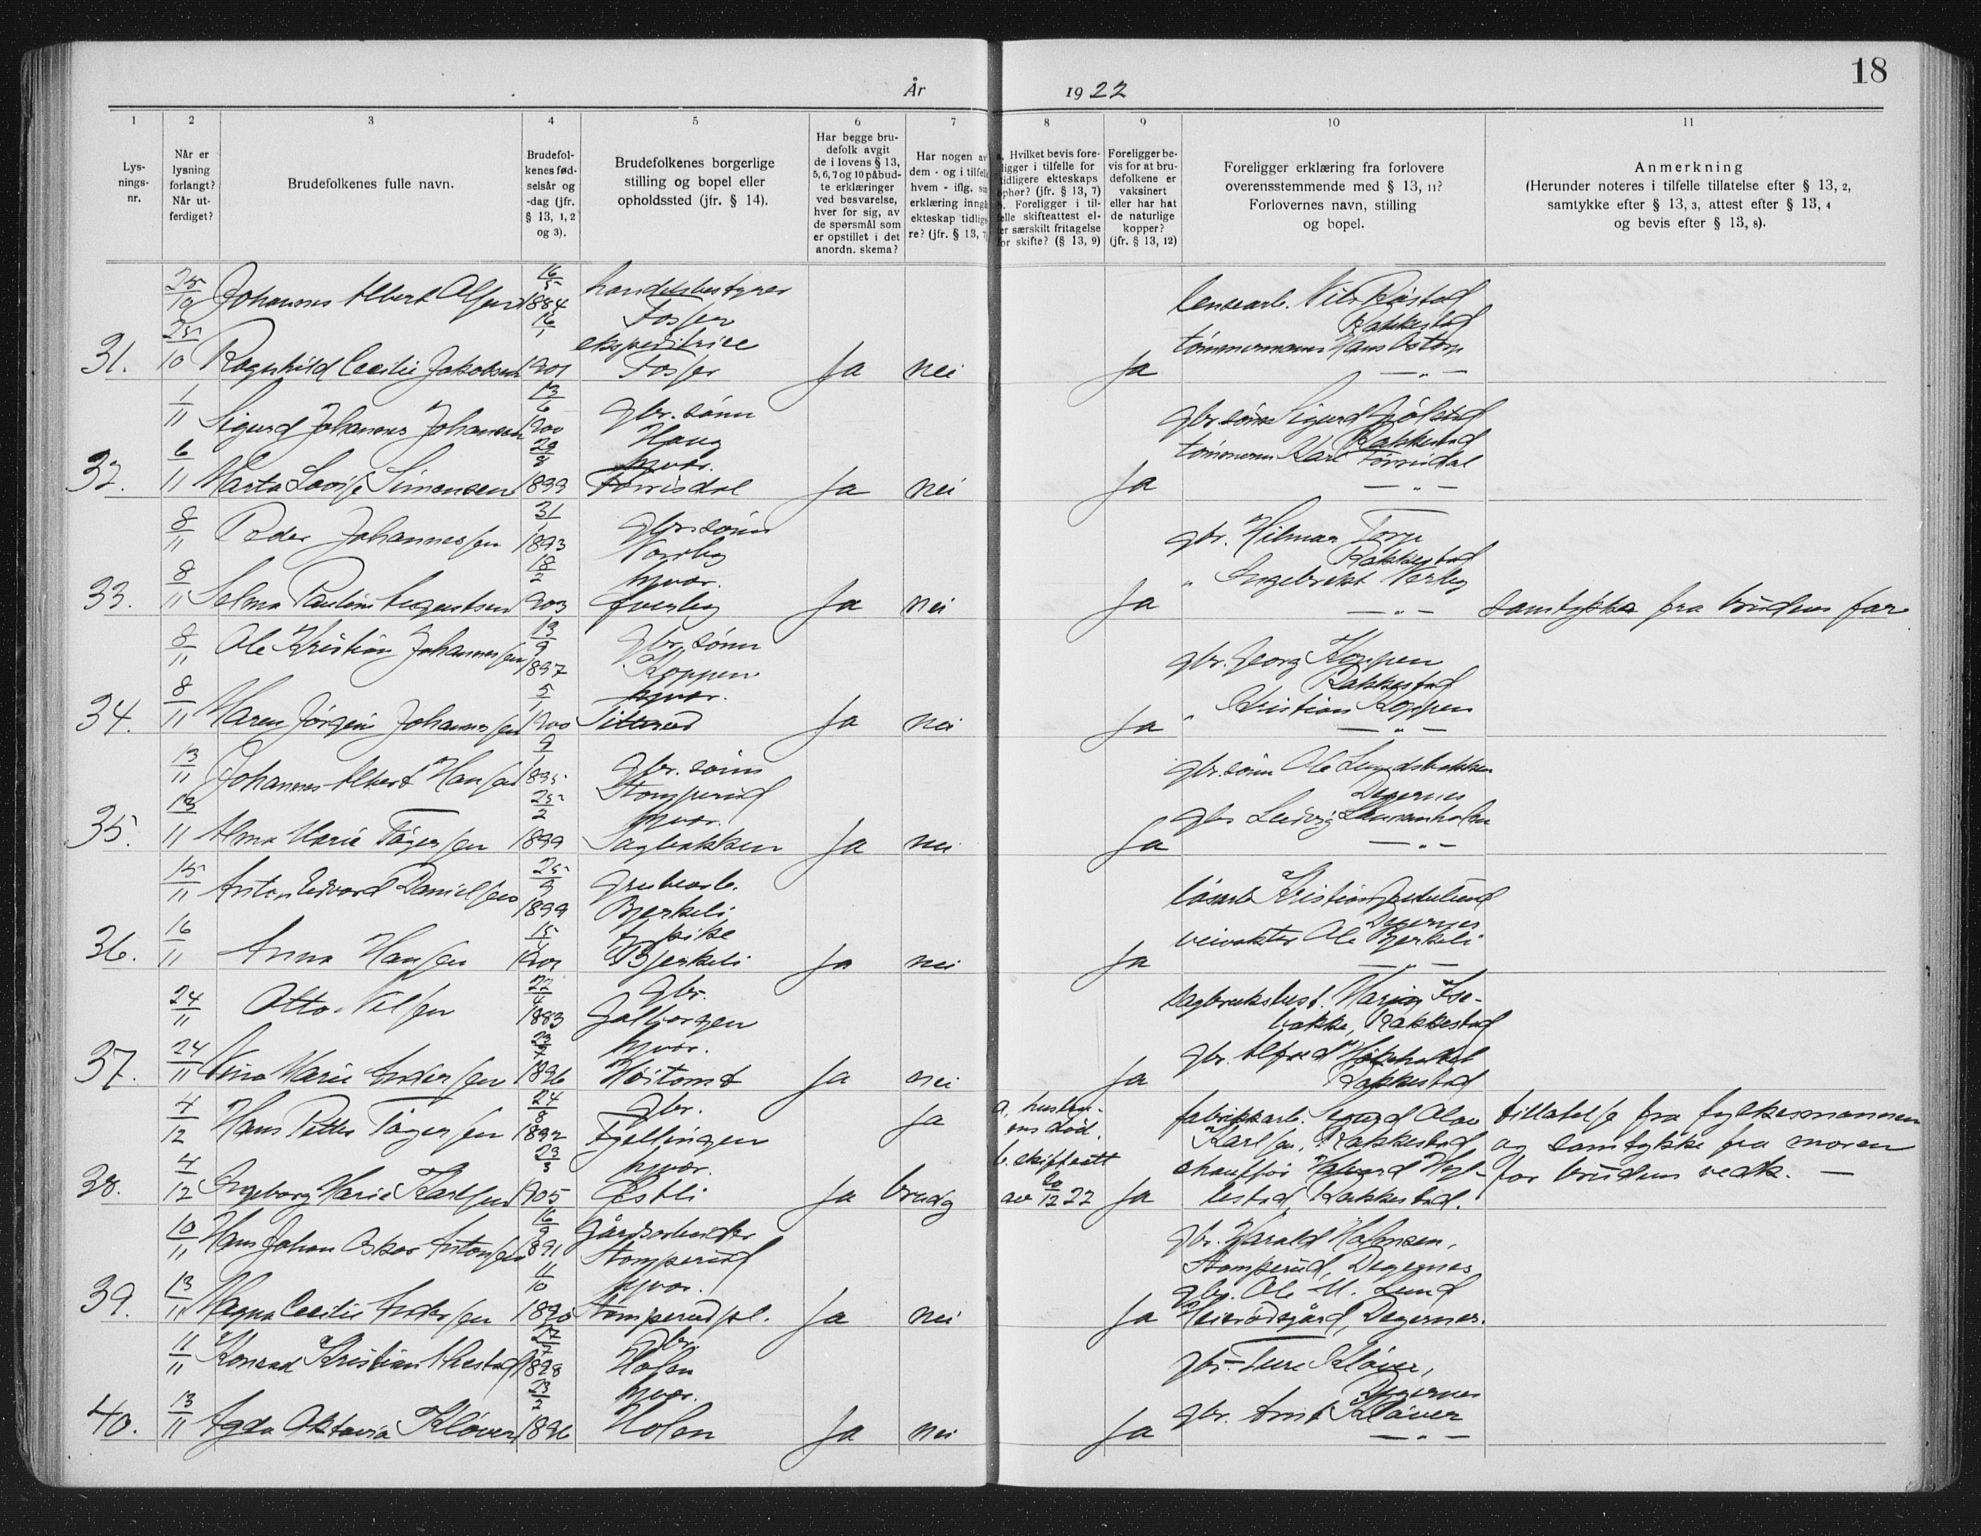 18
År 1922
1 2 3 4 5 6 7 8 9 10 11
Lys-
nings-
nr.
Når er
lysning
forlangt?
Når ut-
ferdiget?
Brudefolkenes fulle navn.
Brudefol-
kenes fød-
selsår og
-dag (jfr.
§ 13, 1, 2
og 3).
Brudefolkenes borgerlige
stilling og bopel eller
opholdssted (jfr. § 14).
Har begge bru-
defolk avgit
de i lovens § 13,
5, 6, 7 og 10 påbud-
te erklæringer
ved besvarelse,
hver for sig, av
de spørsmål som
er opstillet i det
anordn. skema?
Har nogen av
dem - og i tilfelle
hvem - iflg. sin
erklæring inngå
ekteskap tidlige
re? (jfr. § 13, 7
a. Hvilket bevis fore-
ligger i tilfelle for
tidligere ekteskaps
ophør? (jfr. § 13, 7)
b. Foreligger i til-
felle skifteattest el-
ler særskilt fritagelse
for skifte? (§ 13, 9)
Foreligger be-
vis for at bru-
defolkene er
vaksinert
eller har hat
de naturlige
kopper?
(jfr. § 13, 12)
Foreligger erklæring fra forlovere
overensstemmende med § 13, 11?
Forlovernes navn, stilling
og bopel.
Anmerkning
(Herunder noteres i tilfelle tillatelse efter § 13, 2,
samtykke efter § 13, 3, attest efter § 13, 4
og bevis efter § 13, 8).
25/10 Johannes Albert Olsen 16/5 1884 handelsbestyrer
Fosser
lensearb. Nils
Rakkestad
31. 25/10 Ragnhild Cecilie Jakobsen 16/1 1901 ekspeditrice
Fosser Ja nei Ja tømmermann Hans
— " —
1/11 Sigurd Johannes Johansen 13/6 1900 gbr. sønn
Haug
gbr. sønn Sigurd
Rakkestad
32. 6/11 Marta Lovise Simensen 29/8 1899 hjvær.
Tørrisdal Ja nei Ja tømmerm Karl Tørrisdal
— " —
8/11 Peder Johannessen 31/1 1893 gbr. sønn
Nordby
gbr. Hilmar Torp
Rakkestad
33. 8/11 Selma Pauline 18/2 1903 hjvær.
Ja nei Ja " Ingebrekt
— " — samtykke fra brudens far
8/11 Ole Kristian Johannessen 13/9 1897 gbr. sønn
Koppen
gbr. Georg Koppen
Rakkestad
34. 8/11 Maren Jørgine Johannessen 5/1 1900 hjvær.
Ja nei Ja " Kristian Koppen
— " —
13/11 Johannes Albert Hansen 9/1 1895 gbr. sønn
Stomperud
gbr. sønn Ole Lundsbakken
Degernes
35. 13/11 Alma Marie Tøgersen 25/2 1899 hjvær.
Sagbakken Ja nei Ja gbr Ludvig
— " —
15/11 Anton Edvard Danielsen 25/9 1899 grubearb.
Bjerkeli
løsarb Kristian
Degernes
36. 16/11 Anna Hansen 15/4 1901 fr. pike
Bjerkeli Ja nei Ja veivokter Ole Bjerkeli
— " —
24/11 Otto Nilsen 22/4 1883 gbr.
sagbruksbest. Marius Ise-
bakke, Rakkestad
37. 24/11 Anna Marie Andersen 1896 hjvær.
Høitomt Ja nei Ja gbr. Alfred
Rakkestad
4/12 Hans Petter Tøgersen 24/8 1892 gbr.
Fjellingen Ja a. hustru-
ens død. fabrikkarb. Sigurd Olav
Karlsen, Rakkestad tillatelse fra fylkesmannen
og samtykke fra moren
38. 4/12 Ingeborg Marie Karlsen 23/3 1905 hjvær.
Østli Ja brudg b. skifteatt
av 20/12 22 Ja chauffør
Rakkestad. for brudens vedk. —
10/11 Hans Johan Oskar Antonsen 16/9 1891 gårdsarbeider
Stomperud
gbr. Harald Hansen,
Stomperud, Degernes
39. 13/11 Magna Cecilie Andersen 11/10 1890 hjvær.
Stomperud pl. Ja nei Ja gbr. Ole M. Lund
Heierødsgård, Degernes.
11/11 Konrad Kristian 27/7 1898 gbr.
Holen
gbr. Ture Kløver,
Degernes
40. 13/11 Agda Oktavia Kløver 23/2 1896 hjvær.
Holen Ja nei Ja gbr. Arnt Kløver
— " —